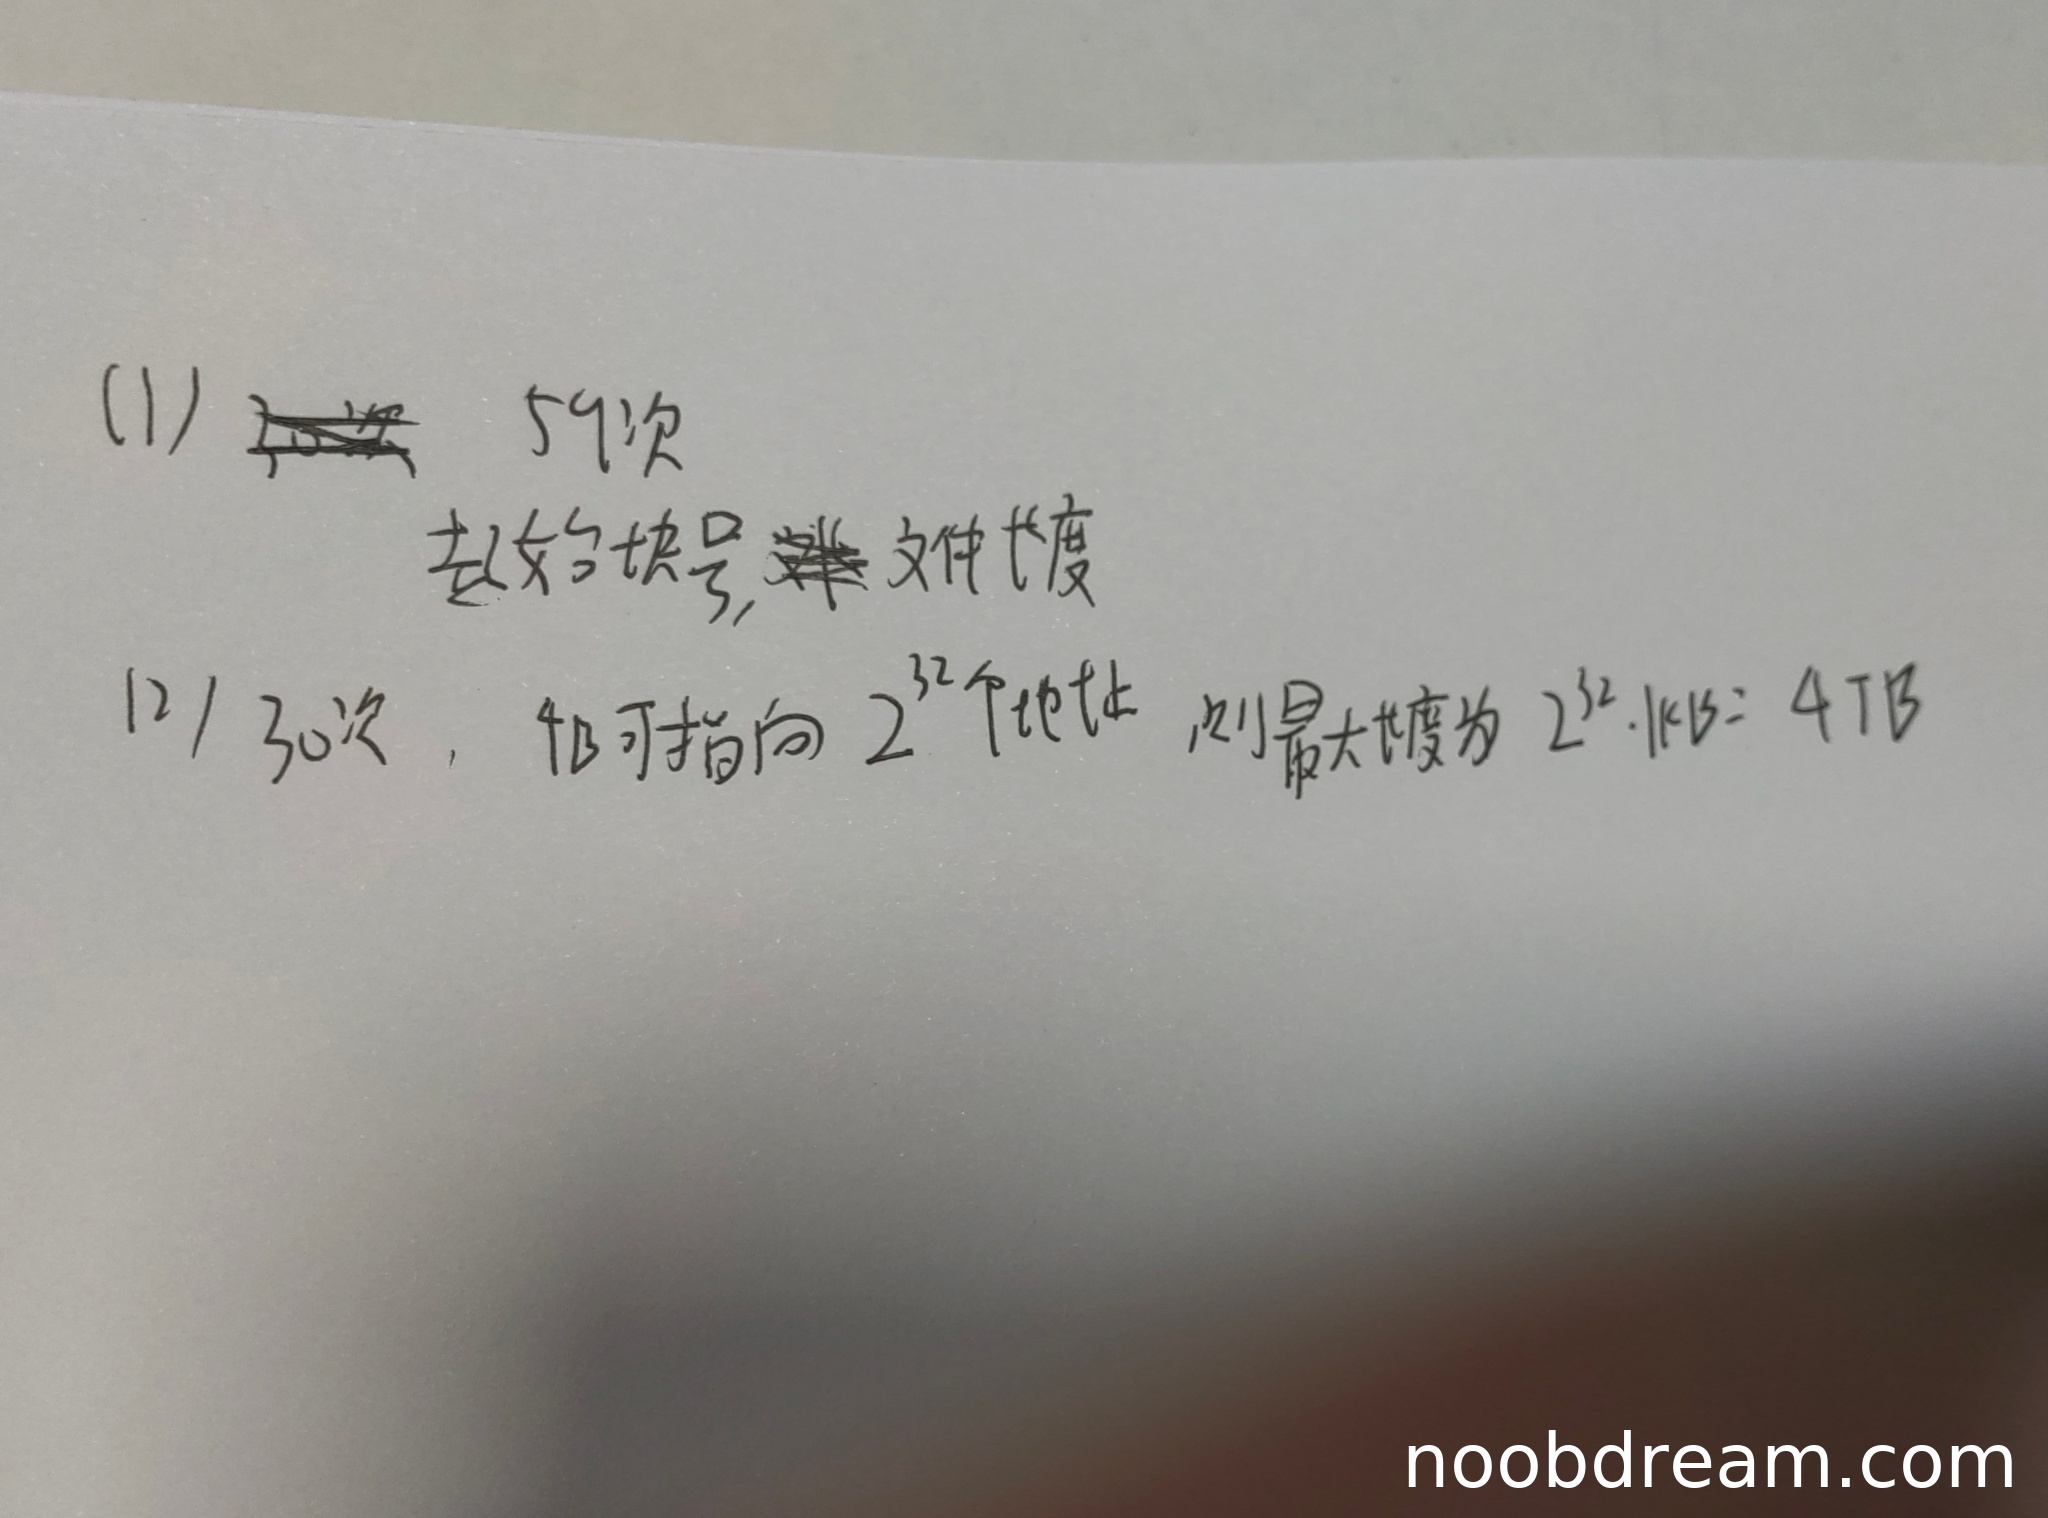 (1) 59次
起始块号, 文件长度
(2) 30次, 4B可指向 2^32个地址, 则最大长度为 2^32·1KB = 4TB
noobdream.com